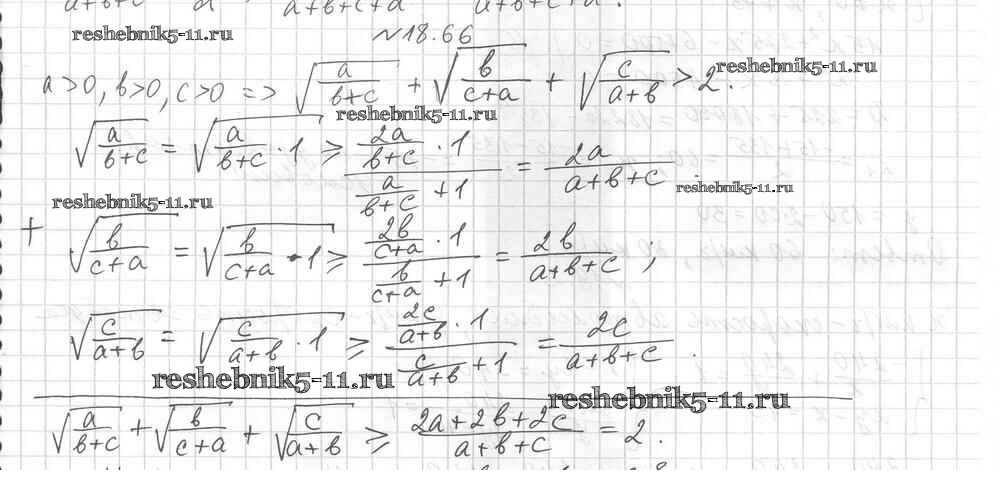 a+b+c+d
reshebnik5-11.ru
№18.66
a>0, b>0, c>0 => √(a/(b+c)) + √(b/(c+a)) + √(c/(a+b)) > 2.
reshebnik5-11.ru
reshebnik5-11.ru
√(a/(b+c)) = √(a/(b+c) · 1) ≥ (2a/(b+c) · 1)/(a/(b+c) + 1) = 2a/(a+b+c)
reshebnik5-11.ru
reshebnik5-11.ru
+ √(b/(c+a)) = √(b/(c+a) · 1) ≥ (2b/(c+a) · 1)/(b/(c+a) + 1) = 2b/(a+b+c) ;
√(c/(a+b)) = √(c/(a+b) · 1) ≥ (2c/(a+b) · 1)/(c/(a+b) + 1) = 2c/(a+b+c) .
reshebnik5-11.ru
reshebnik5-11.ru
√(a/(b+c)) + √(b/(c+a)) + √(c/(a+b)) ≥ (2a+2b+2c)/(a+b+c) = 2.